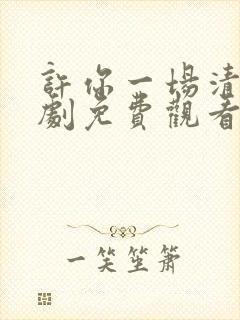 許你一場清
劇免費觀看
一笑笙簫